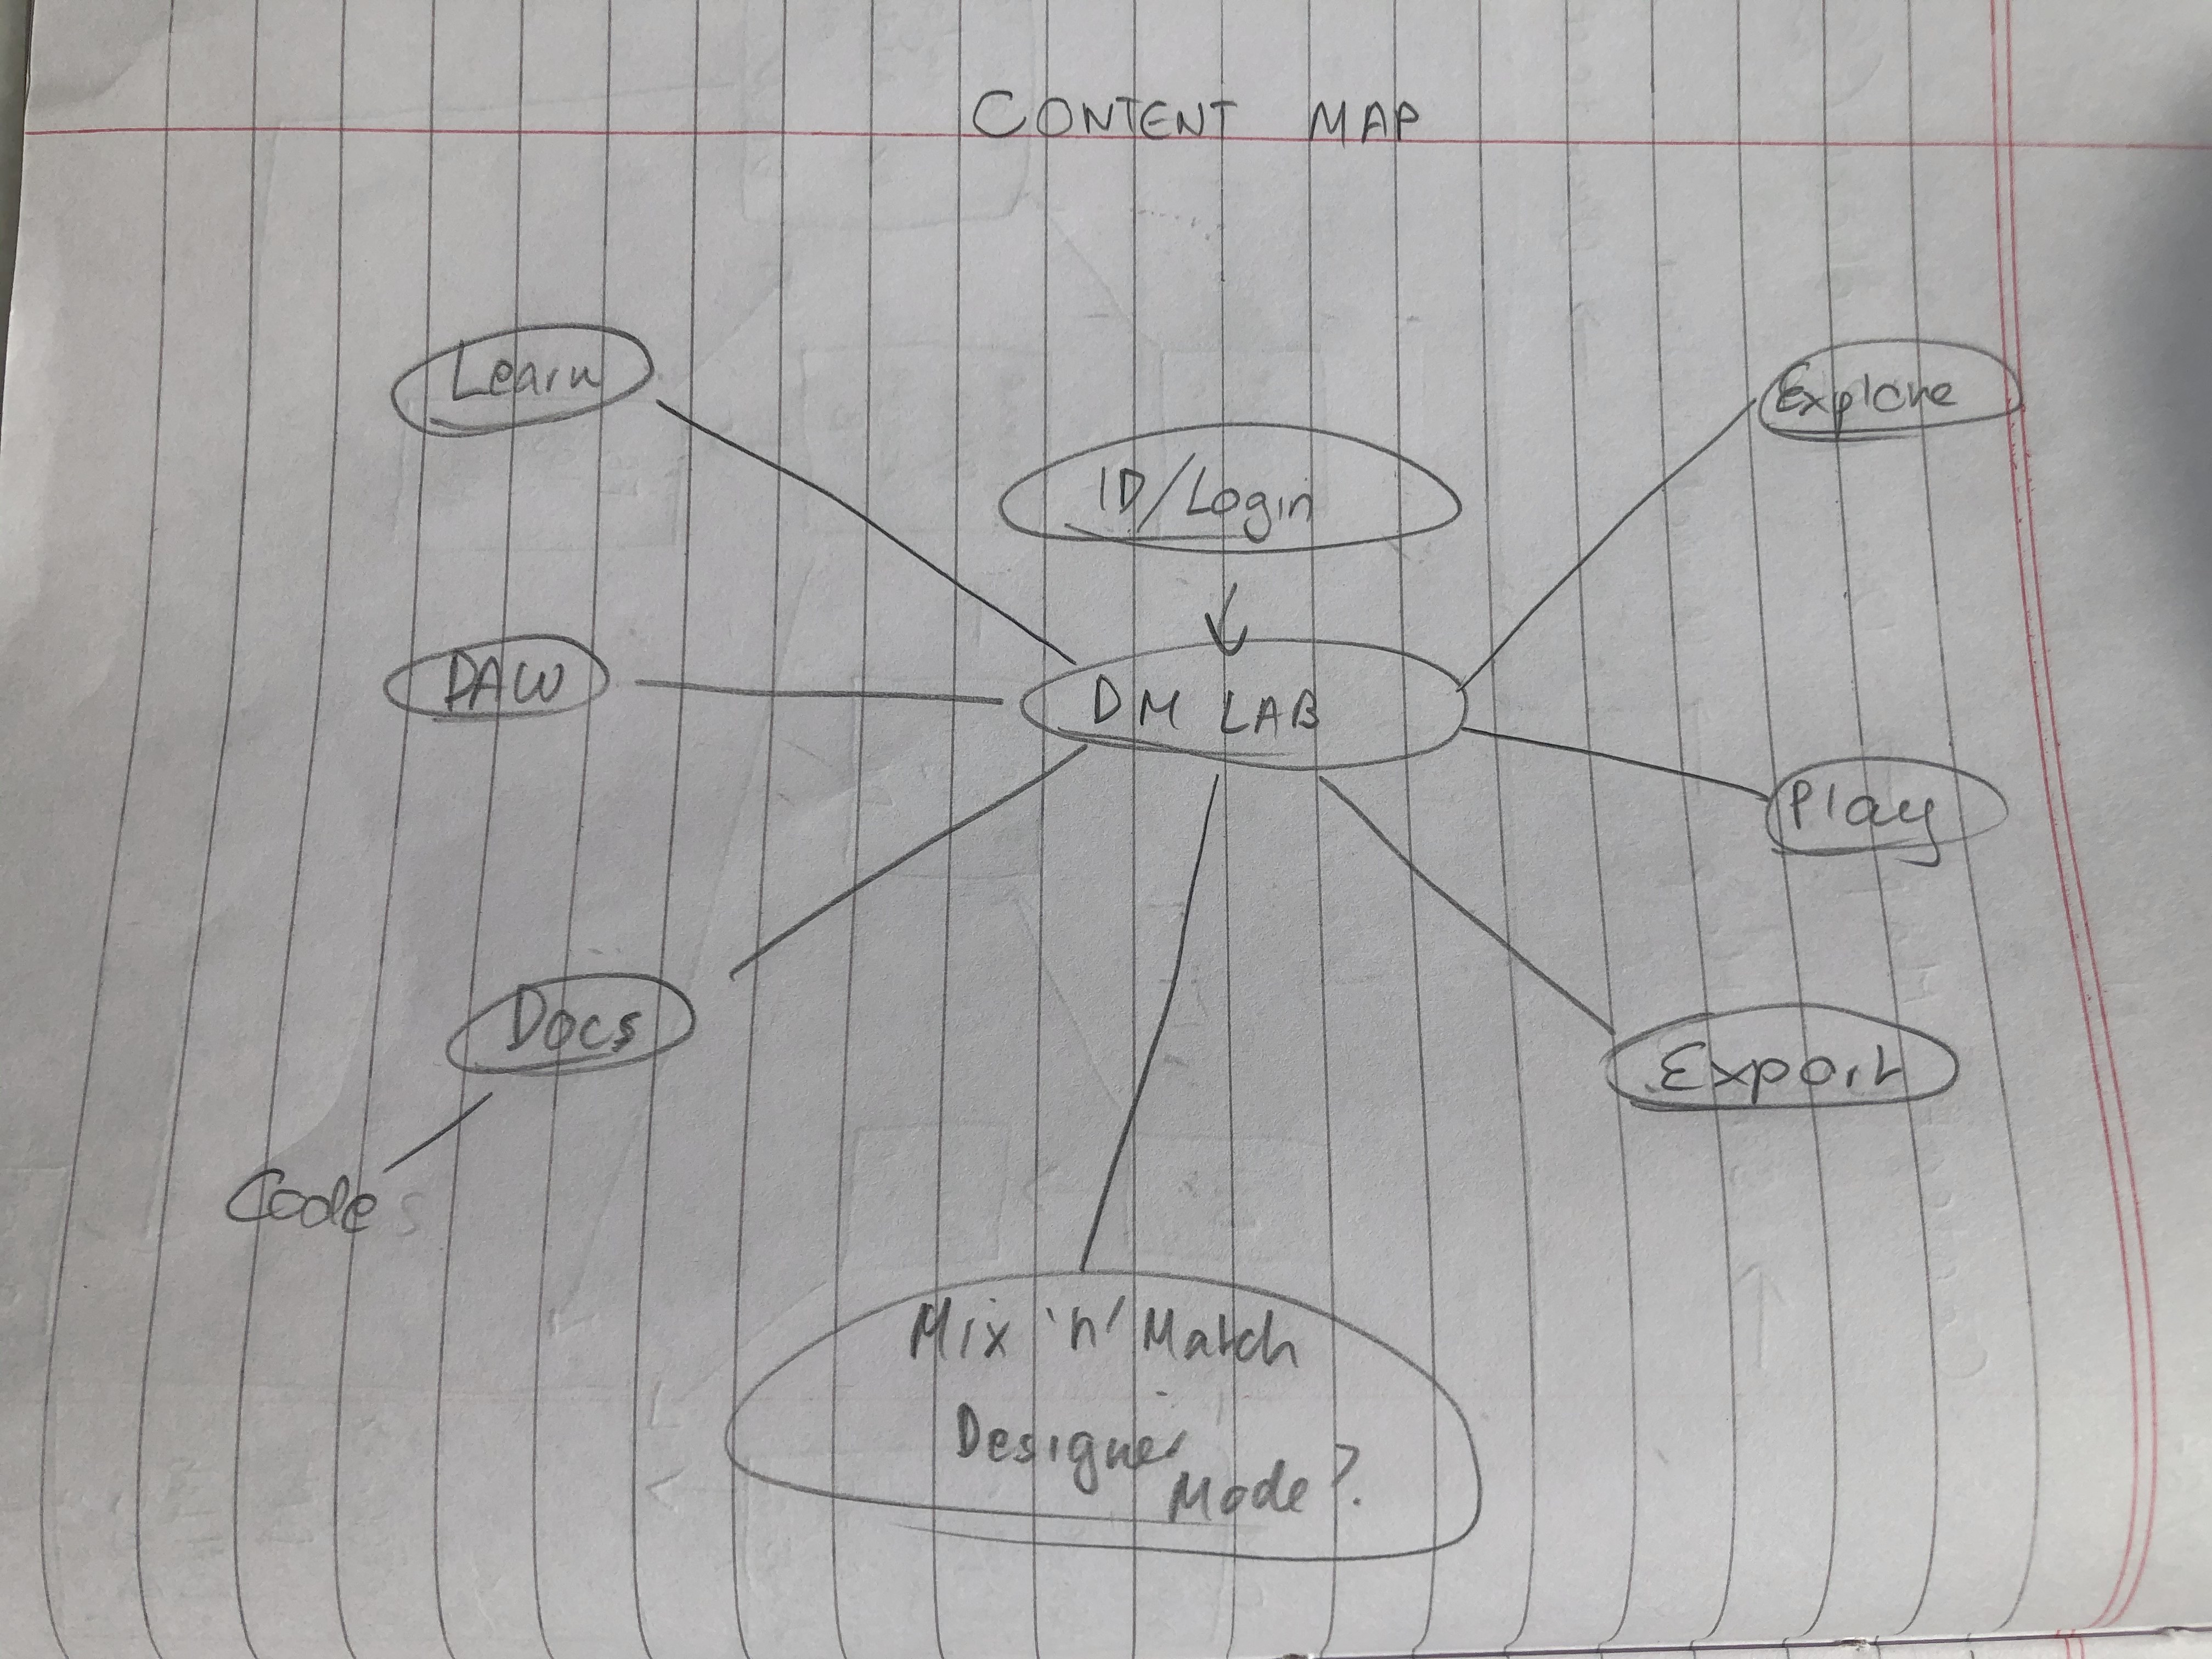 CONTENT MAP
Learn
Explore
ID/Login
DAW
DM LAB
Play
Docs
Export
Code
Mix 'n' Match
Designer
Mode?